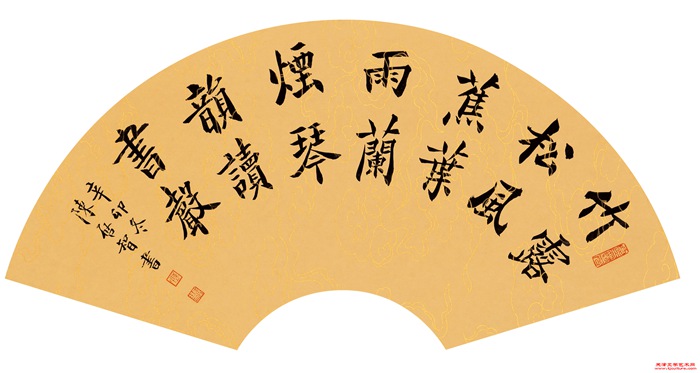 竹露
松風
蕉葉
雨蘭
煙琴
韻讀
書聲
辛卯冬
陳启智書